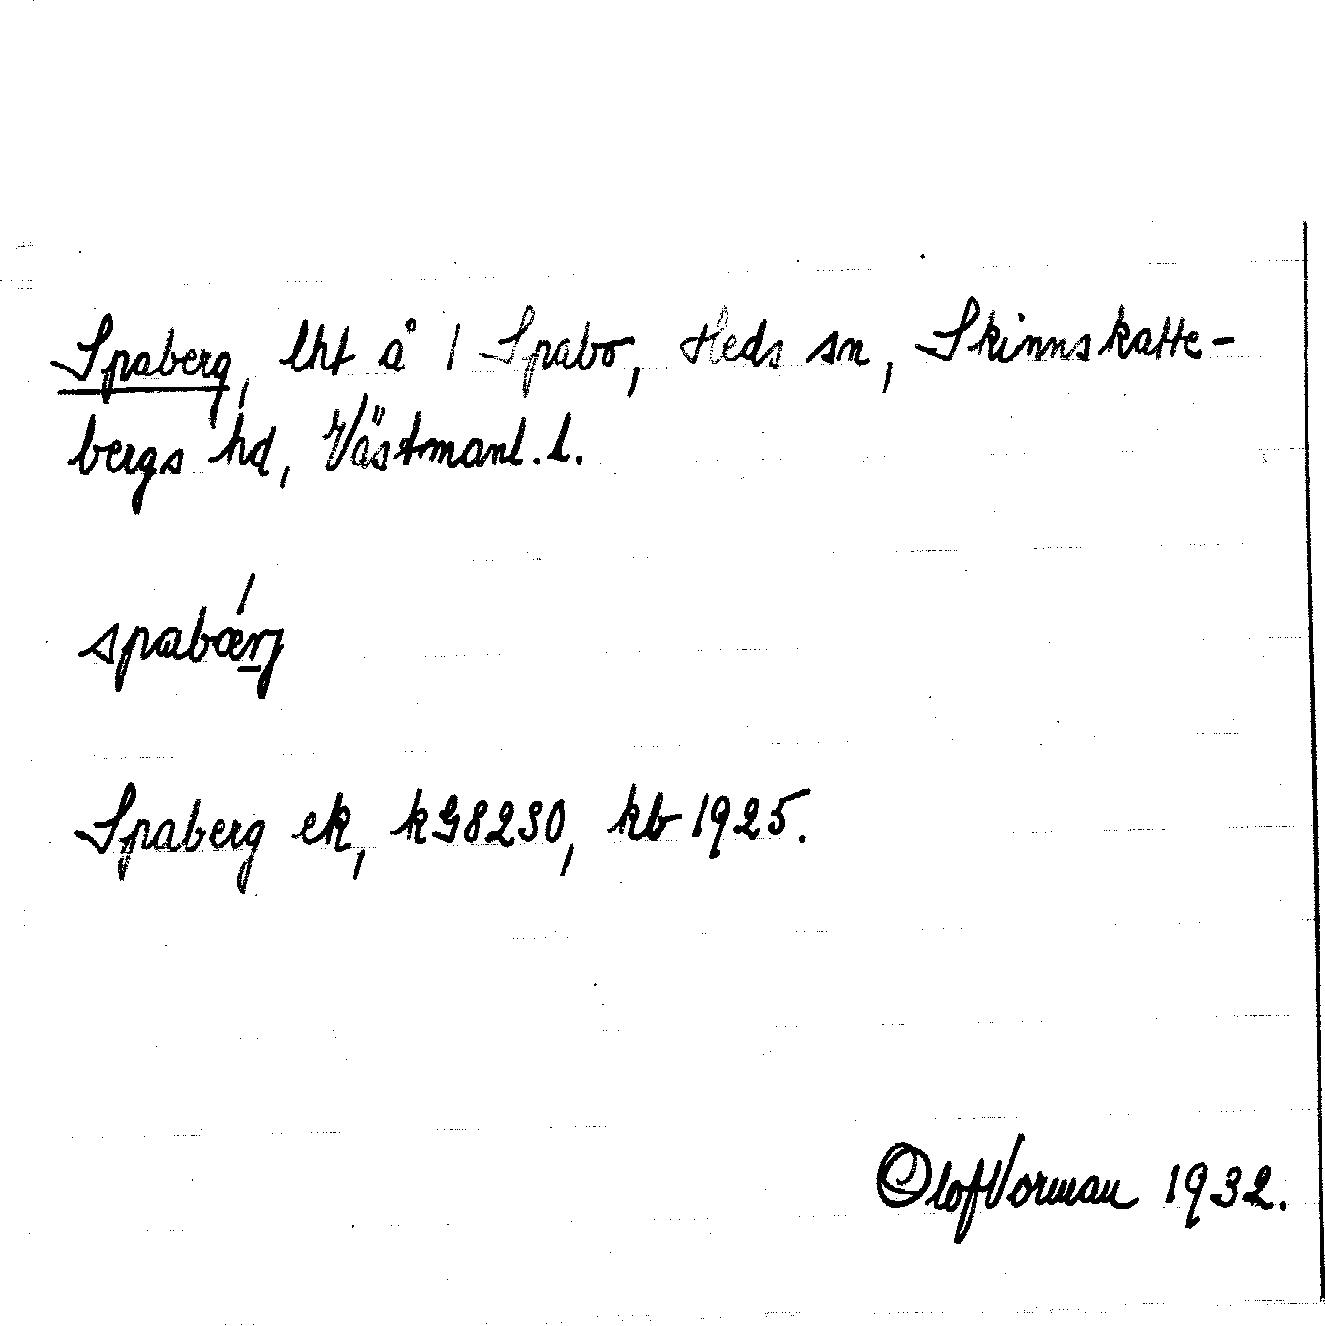 Spaberg, lht å 1 Spabo, Heds sn, Skinnskatte-
bergs hd, Västmanl. l.
spabærj
Spaberg ek, kG8230, kb 1925.
Olof Vorman 1932.